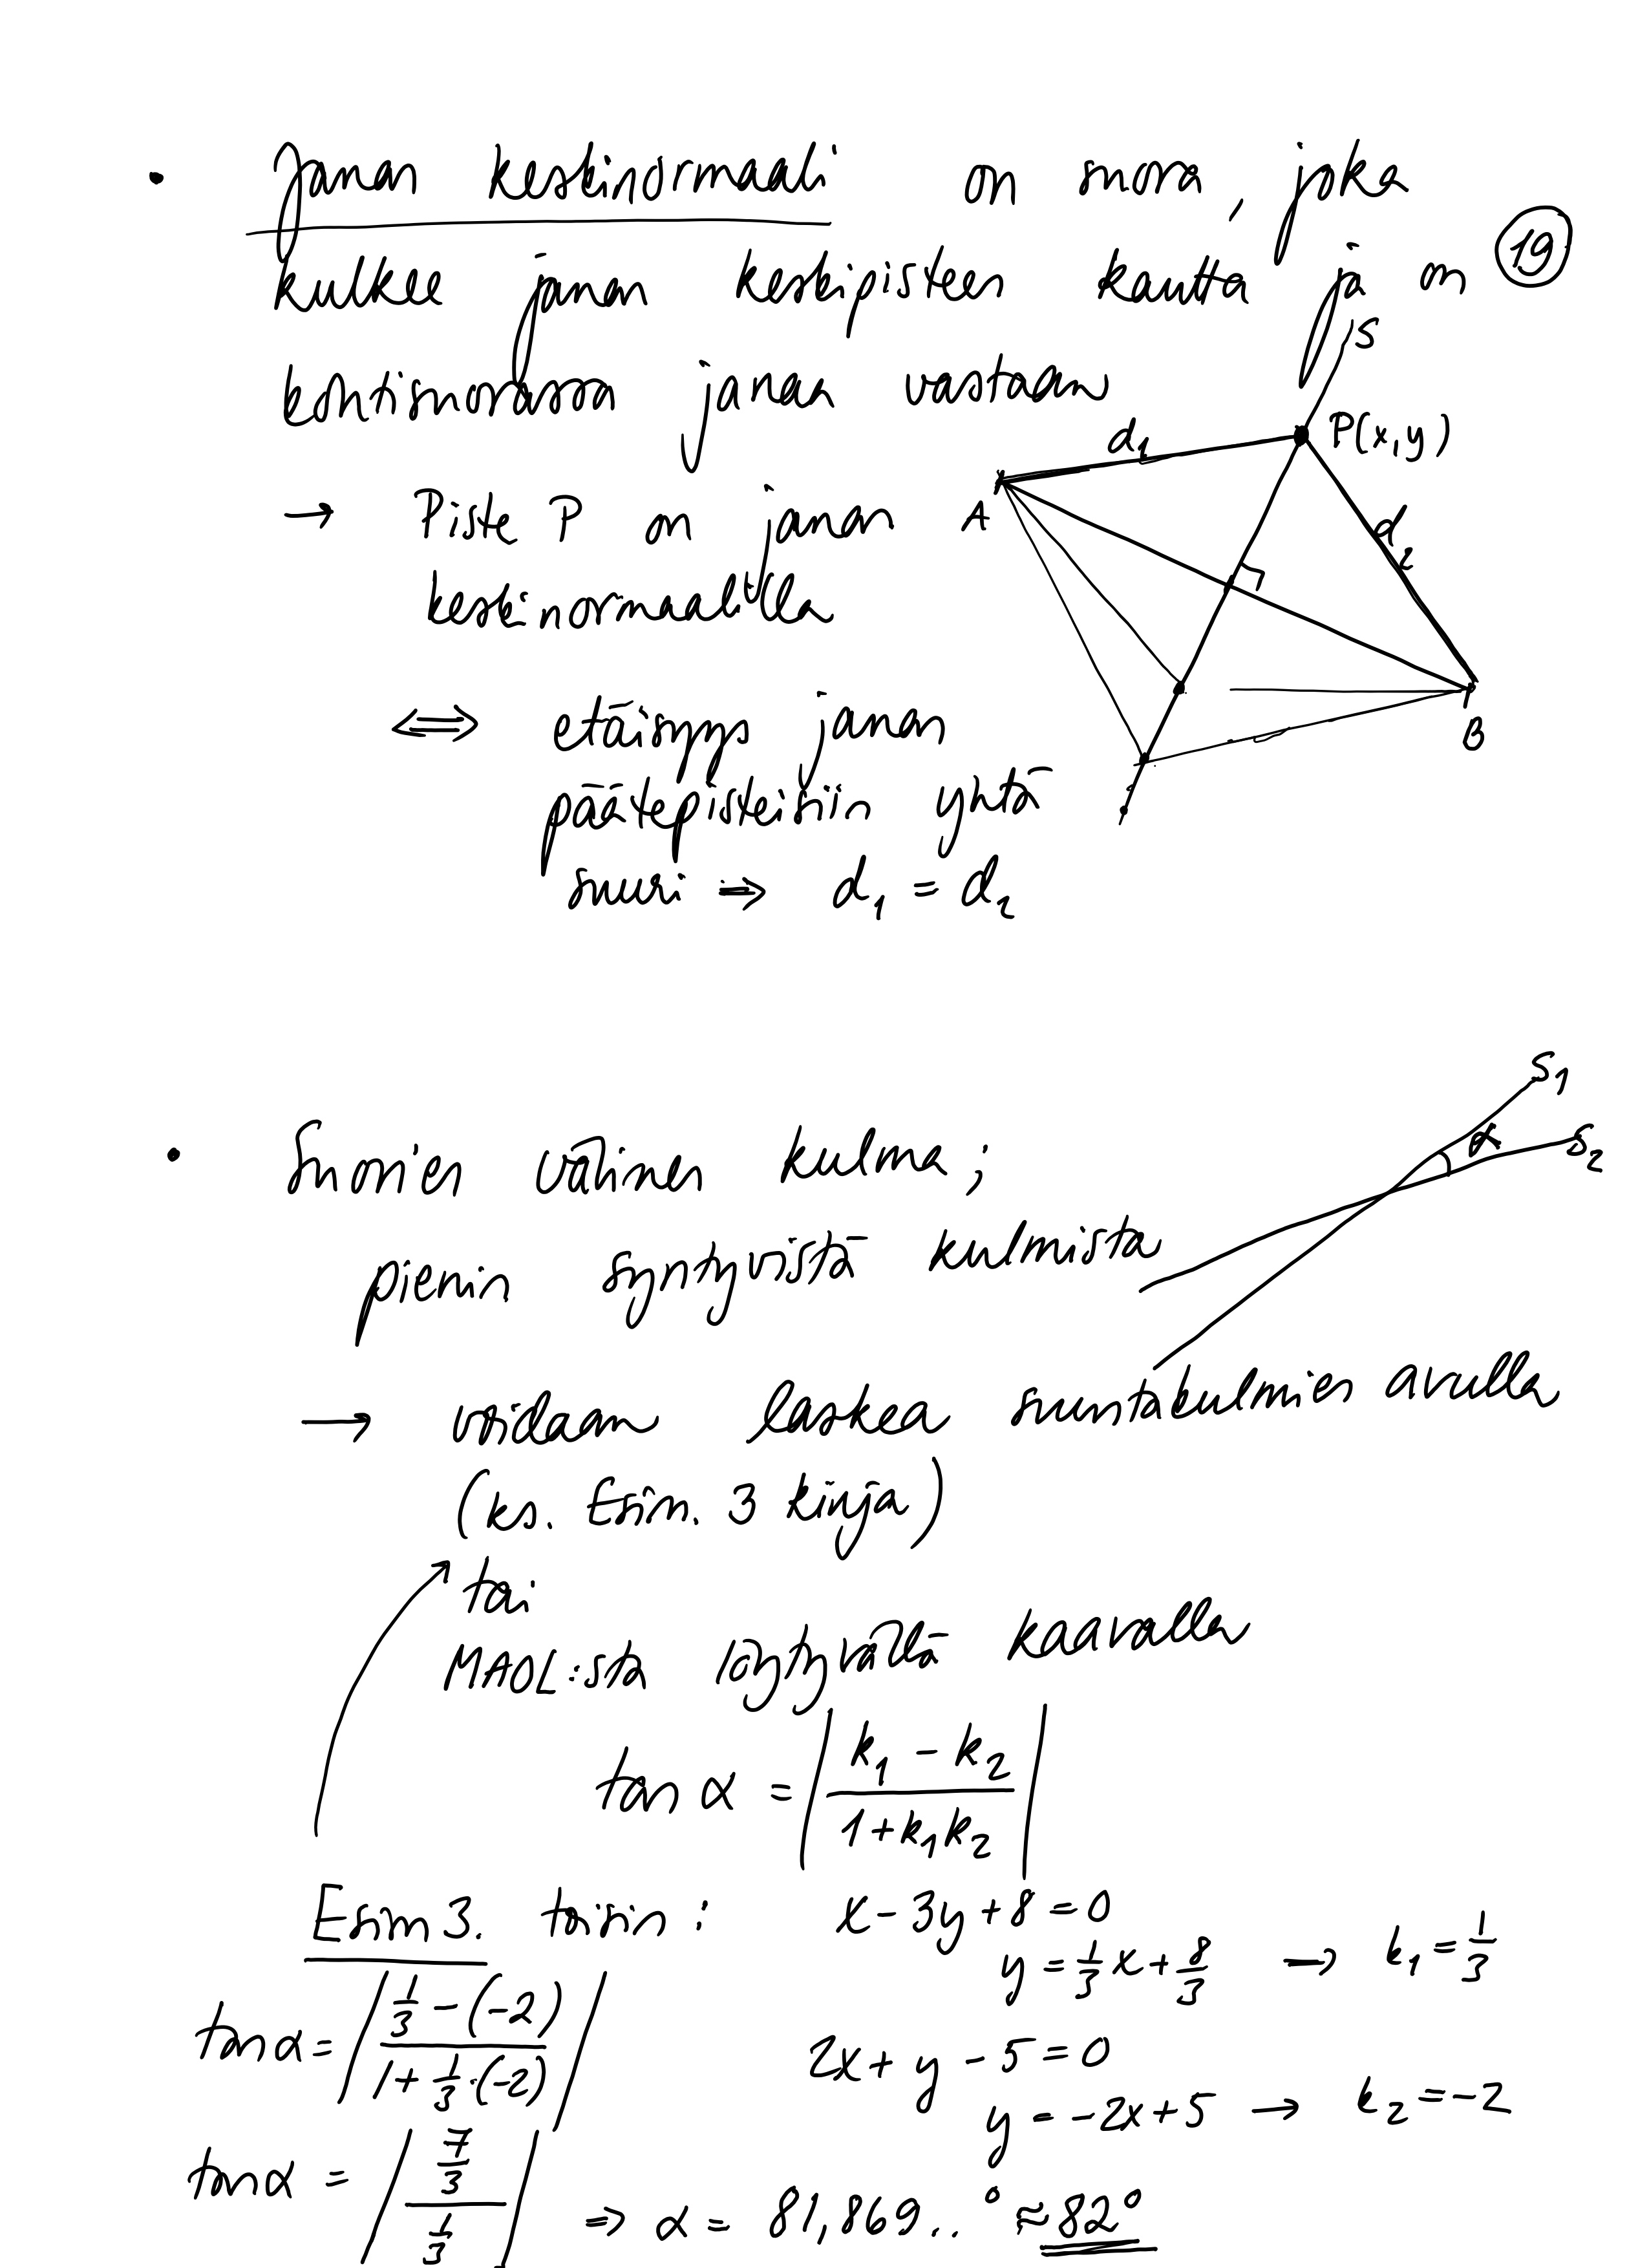 • Janan keskinormaali on suora, joka
19
kulkee janan keskipisteen kautta ja on
kohtisuorassa janaa vastaan
→ Piste P on janan
keskinormaalilla
⟺ etäisyys janan
päätepisteisiin yhtä
suuri ⇒ d₁ = d₂
S
P(x,y)
d₁
A
d₂
B
• Suorien välinen kulma ;
pienin syntyvistä kulmista
S₁
α
S₂
→ voidaan laskea suuntakulmien avulla
(ks. Esim. 3 kirja)
tai
MAOL:sta löytyvällä kaavalla
tan α = | (k₁ - k₂) / (1+k₁k₂) |
Esim 3. toisin : x - 3y + 8 = 0
y = 1/3 x + 8/3 → k₁ = 1/3
tan α = | (1/3 - (-2)) / (1 + 1/3 · (-2)) | 2x + y - 5 = 0
y = -2x + 5 → k₂ = -2
tan α = | (7/3) / (1/3) | ⇒ α = 81,869..° ≈ 82°